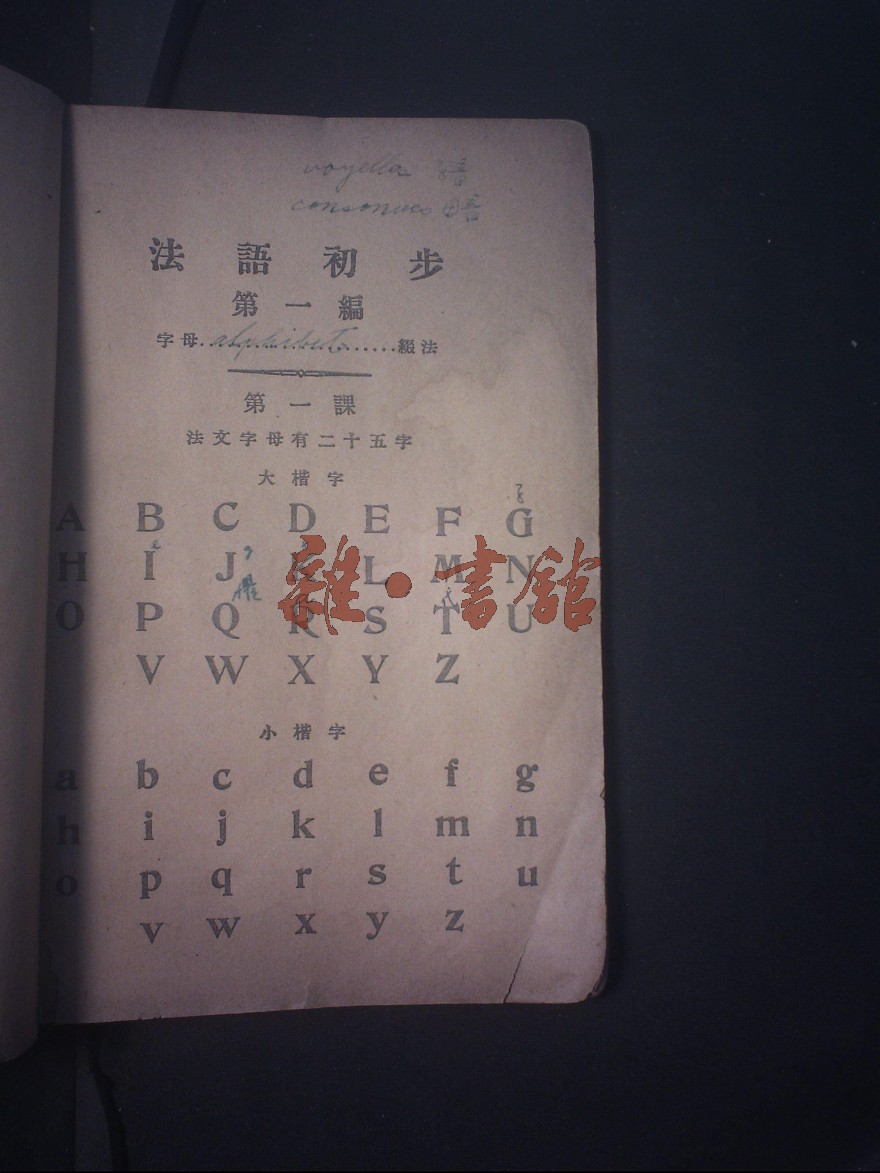 voyella
法語初步
第一編
字母. alphibet ......綴法
第一課
法文字母有二十五字
大楷字
A B C D E F G
H I J K L M N
O P Q R S T U
V W X Y Z
雜·書館
小楷字
a b c d e f g
h i j k l m n
o p q r s t u
v w x y z